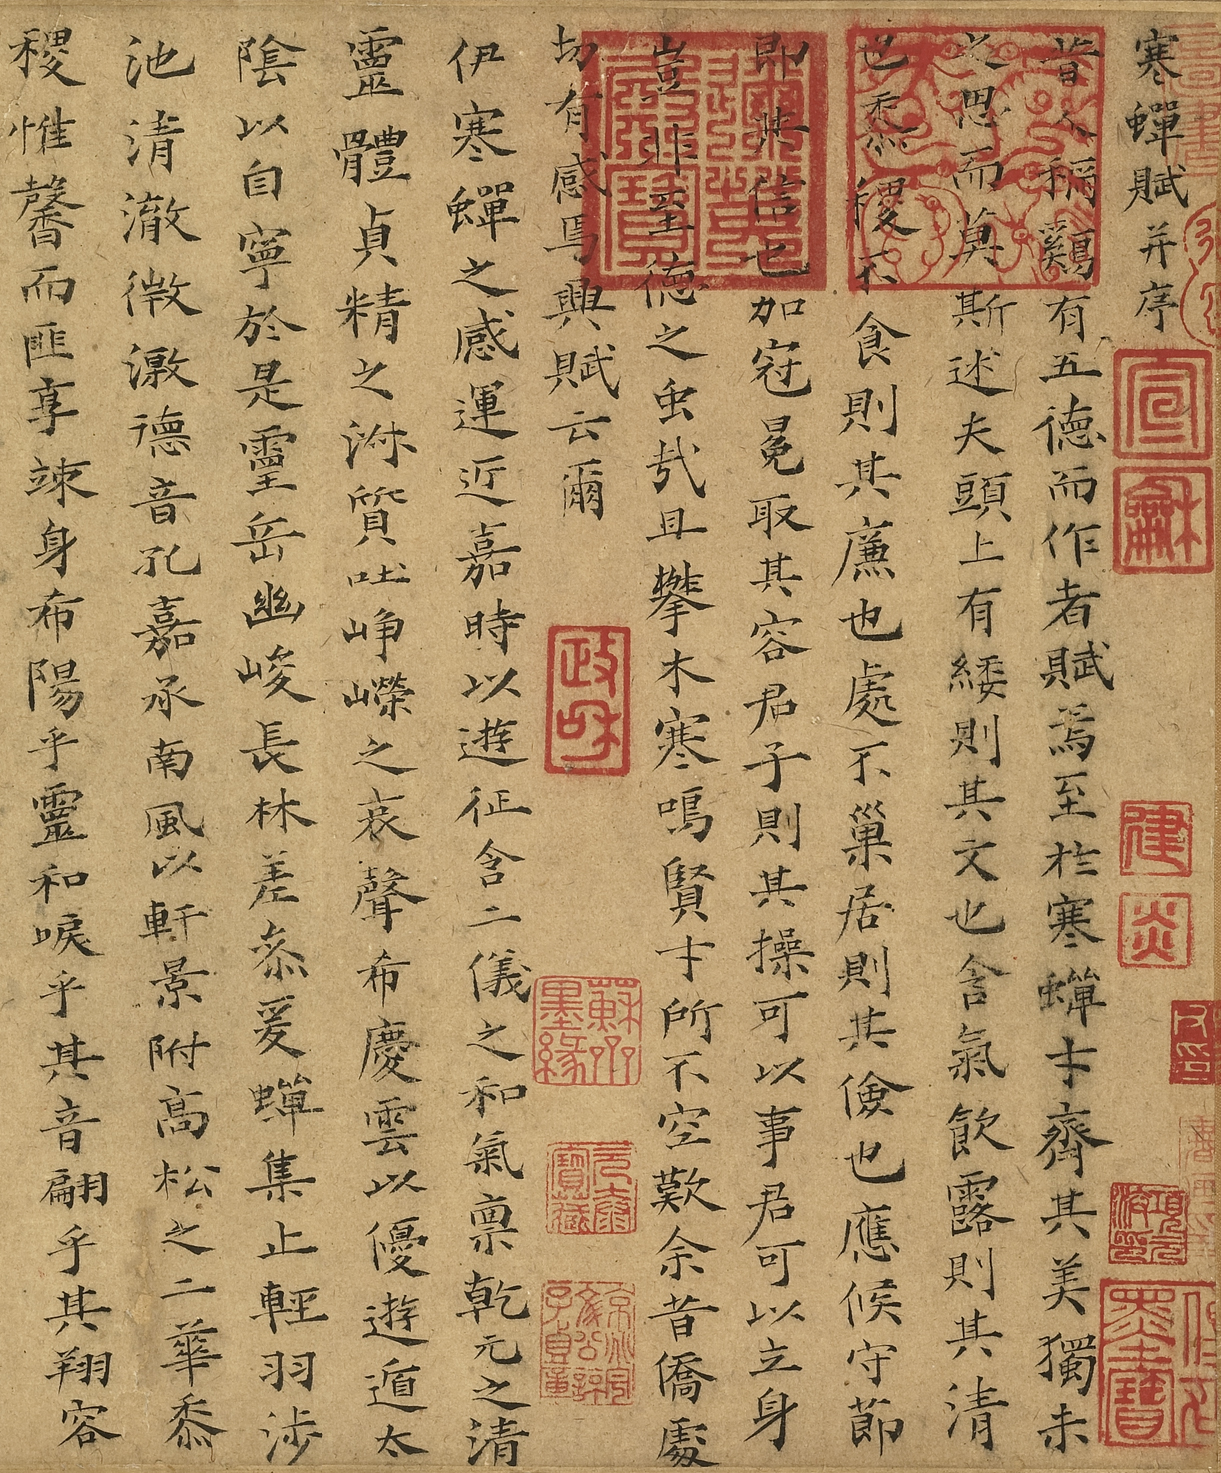 寒蟬賦并序
昔人稱雞有五德而作者賦焉至於寒蟬才齊其美獨未
之思而莫斯述夫頭上有緌則其文也含氣飲露則其清
也黍稷不食則其廉也處不巢居則其儉也應候守節
即其信也加冠冕取其容君子則其操可以事君可以立身
豈非至德之虫哉且攀木寒鳴賢才所不空歎余昔僑處
切有感焉興賦云爾
伊寒蟬之感運近嘉時以遊征含二儀之和氣禀乾元之清
靈體貞精之淋質吐崢嶸之哀聲希慶雲以優遊遁太
陰以自寧於是靈岳幽峻長林差叅爰蟬集止輕羽涉
池清澈微激德音孔嘉承南風以軒景附高松之二華黍
稷惟馨而匪享竦身希陽乎靈和唳乎其音翩乎其翔容
宣龢
政和
建炎
蘇齋墨緣